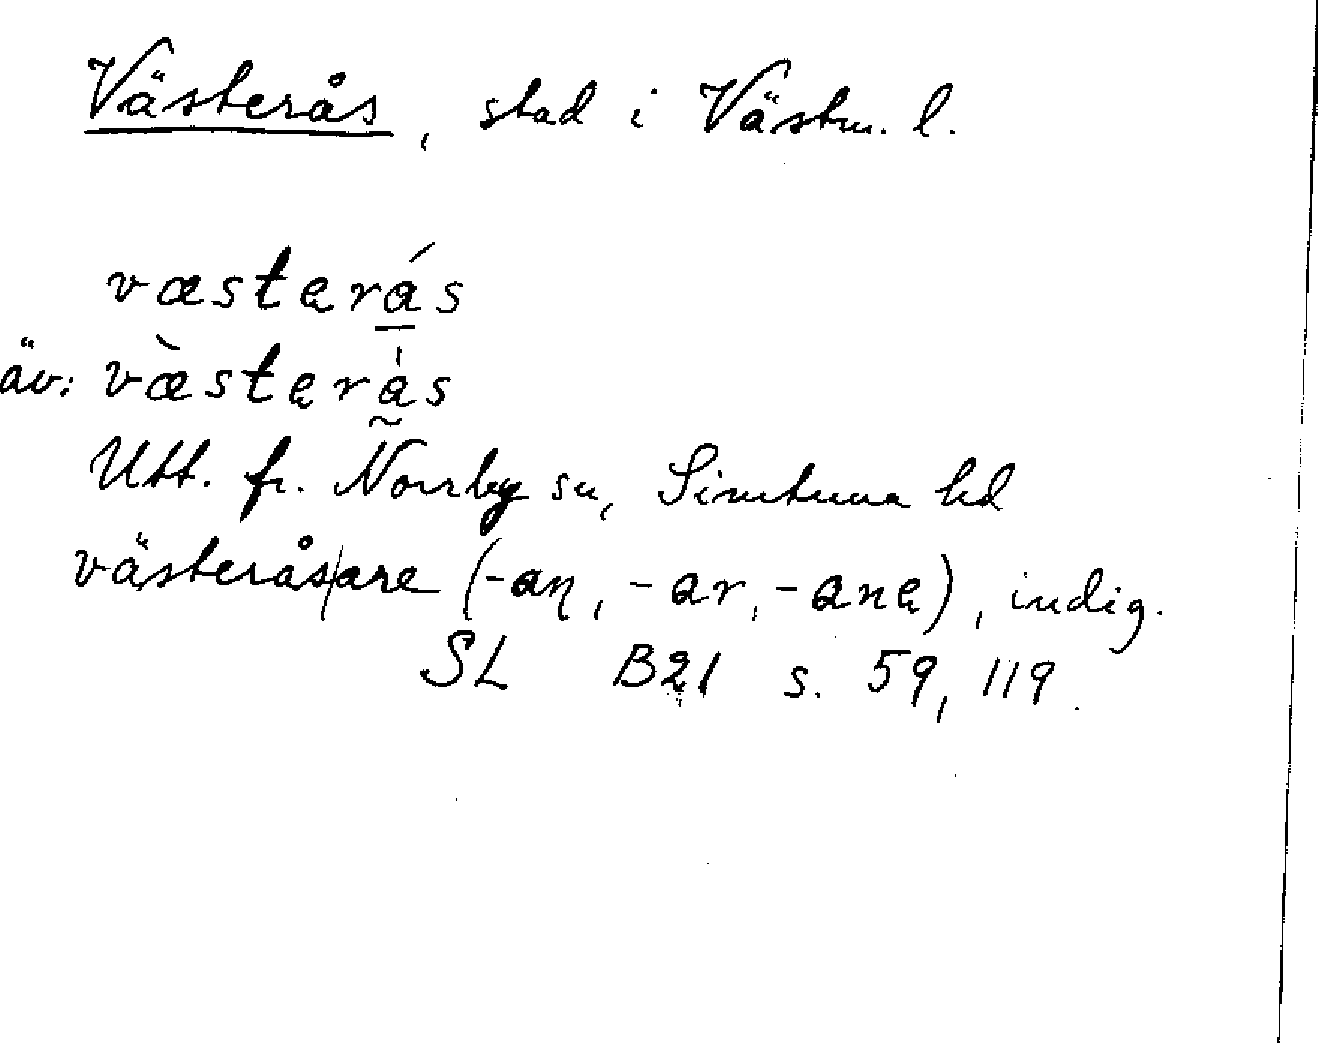 Västerås, stad i Västm. l.
væsterás
äv: væ̀sterås
Utt. fr. Norrby sn, Simtuna hd
västerås/are (-aꞃ, -ar, -ane), indig.
SL B21 s. 59, 119.